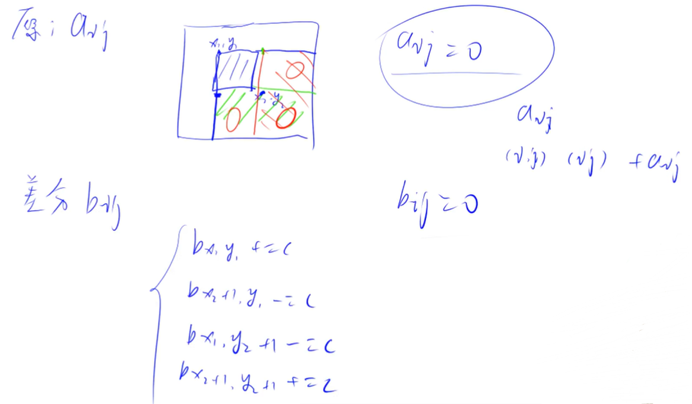 原: aij
x1,y1
x2,y2
aij = 0
aij
(i,j) (i,j) + aij
差分 bij
bij = 0
bx1,y1 += c
bx2+1,y1 -= c
bx1,y2+1 -= c
bx2+1,y2+1 += c